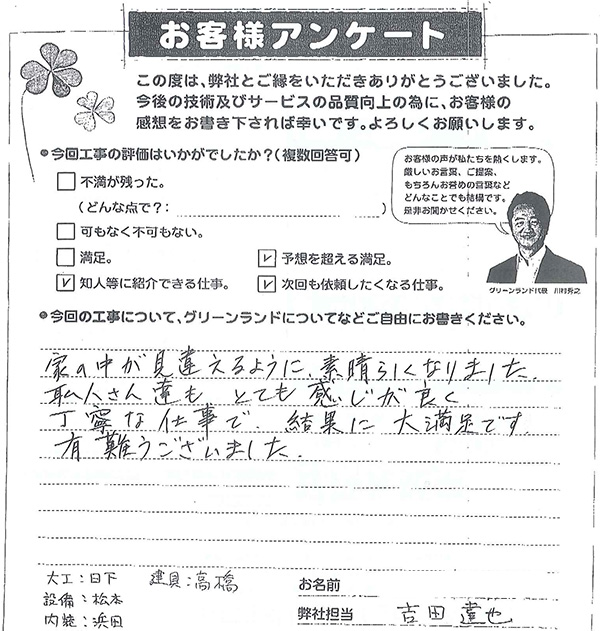 お客様アンケート
この度は、弊社とご縁をいただきありがとうございました。
今後の技術及びサービスの品質向上の為に、お客様の
感想をお書き下されば幸いです。よろしくお願いします。
今回工事の評価はいかがでしたか?(複数回答可)
不満が残った。
(どんな点で?: )
可もなく不可もない。
満足。
予想を超える満足。
知人等に紹介できる仕事。
次回も依頼したくなる仕事。
お客様の声が私たちを熱くします。
厳しいお言葉、ご提案、
もちろんお誉めの言葉など
どんなことでも結構です。
是非お聞かせください。
グリーンランド代表 川村秀之
今回の工事について、グリーンランドについてなどご自由にお書きください。
家の中が見違えるように、素晴らしくなりました。
職人さん達も とても感じが良く
丁寧な仕事で、結果に大満足です。
有難うございました。
大工:日下 建具:高橋
設備:松本
内装:浜田
お名前
弊社担当 吉田達也